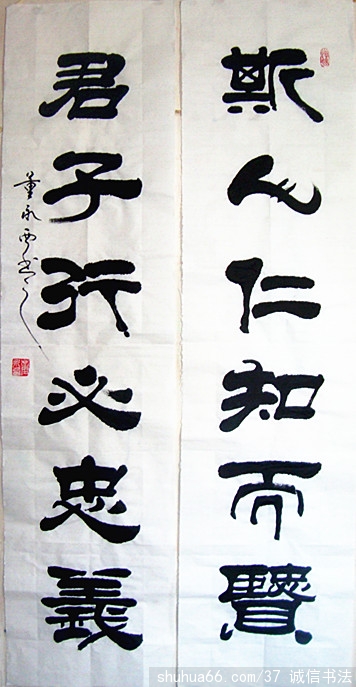 斯人仁知而賢
君子行必忠義
董永西书
shuhua66.com/37 诚信书法